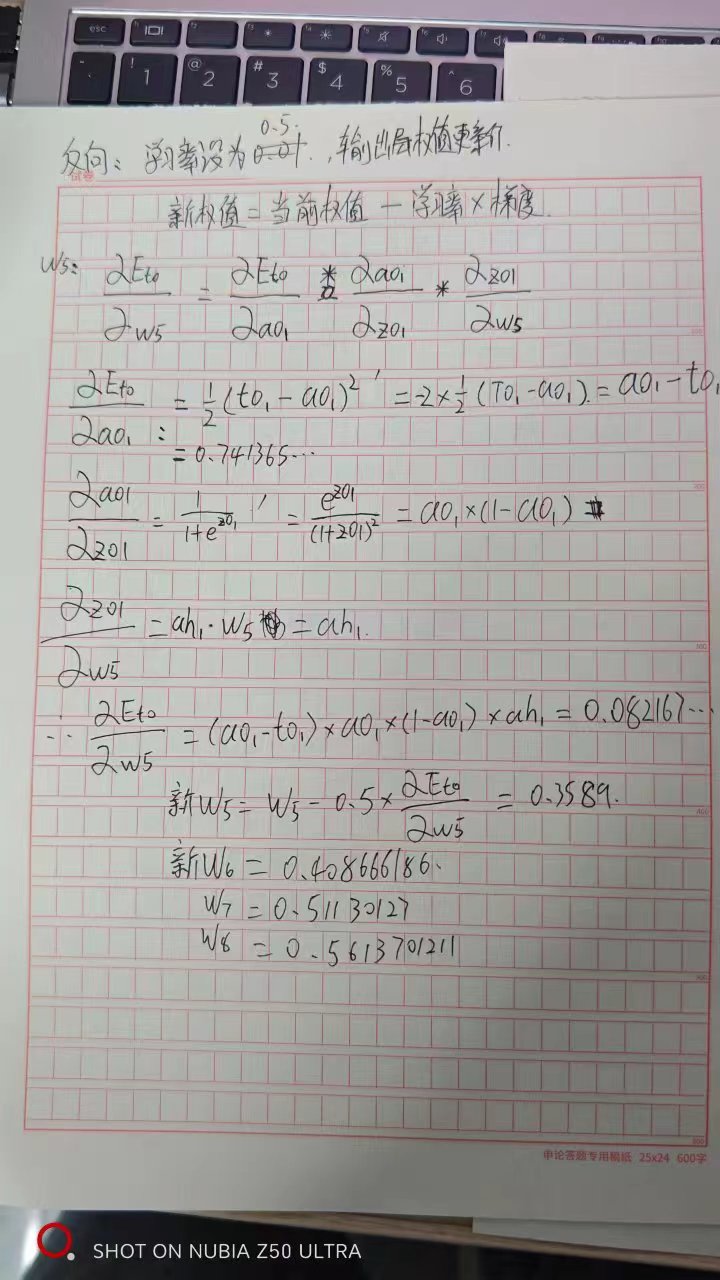 esc
! 1 @ 2 # 3 $ 4 % 5 ^ 6
反向：学习率设为0.5，输出层权值更新
试卷
新权值 = 当前权值 - 学习率 × 梯度
W5: ∂Eto/∂w5 = ∂Eto/∂ao1 * ∂ao1/∂zo1 * ∂zo1/∂w5
∂Eto/∂ao1: = 1/2 (to1 - ao1)²' = -2×1/2 (To1 - ao1) = ao1 - to1
= 0.741365...
∂ao1/∂zo1 = 1/(1+e^zo1) ' = e^zo1/(1+zo1)² = ao1×(1-ao1)
∂zo1/∂w5 = ah1·W5 = ah1.
∵ ∂Eto/∂w5 = (ao1-to1)×ao1×(1-ao1)×ah1 = 0.082167...
新W5 = W5 - 0.5× ∂Eto/∂w5 = 0.3589.
新W6 = 0.408666186.
W7 = 0.51130127
W8 = 0.5613701211
申论答题专用稿纸 25x24 600字
SHOT ON NUBIA Z50 ULTRA